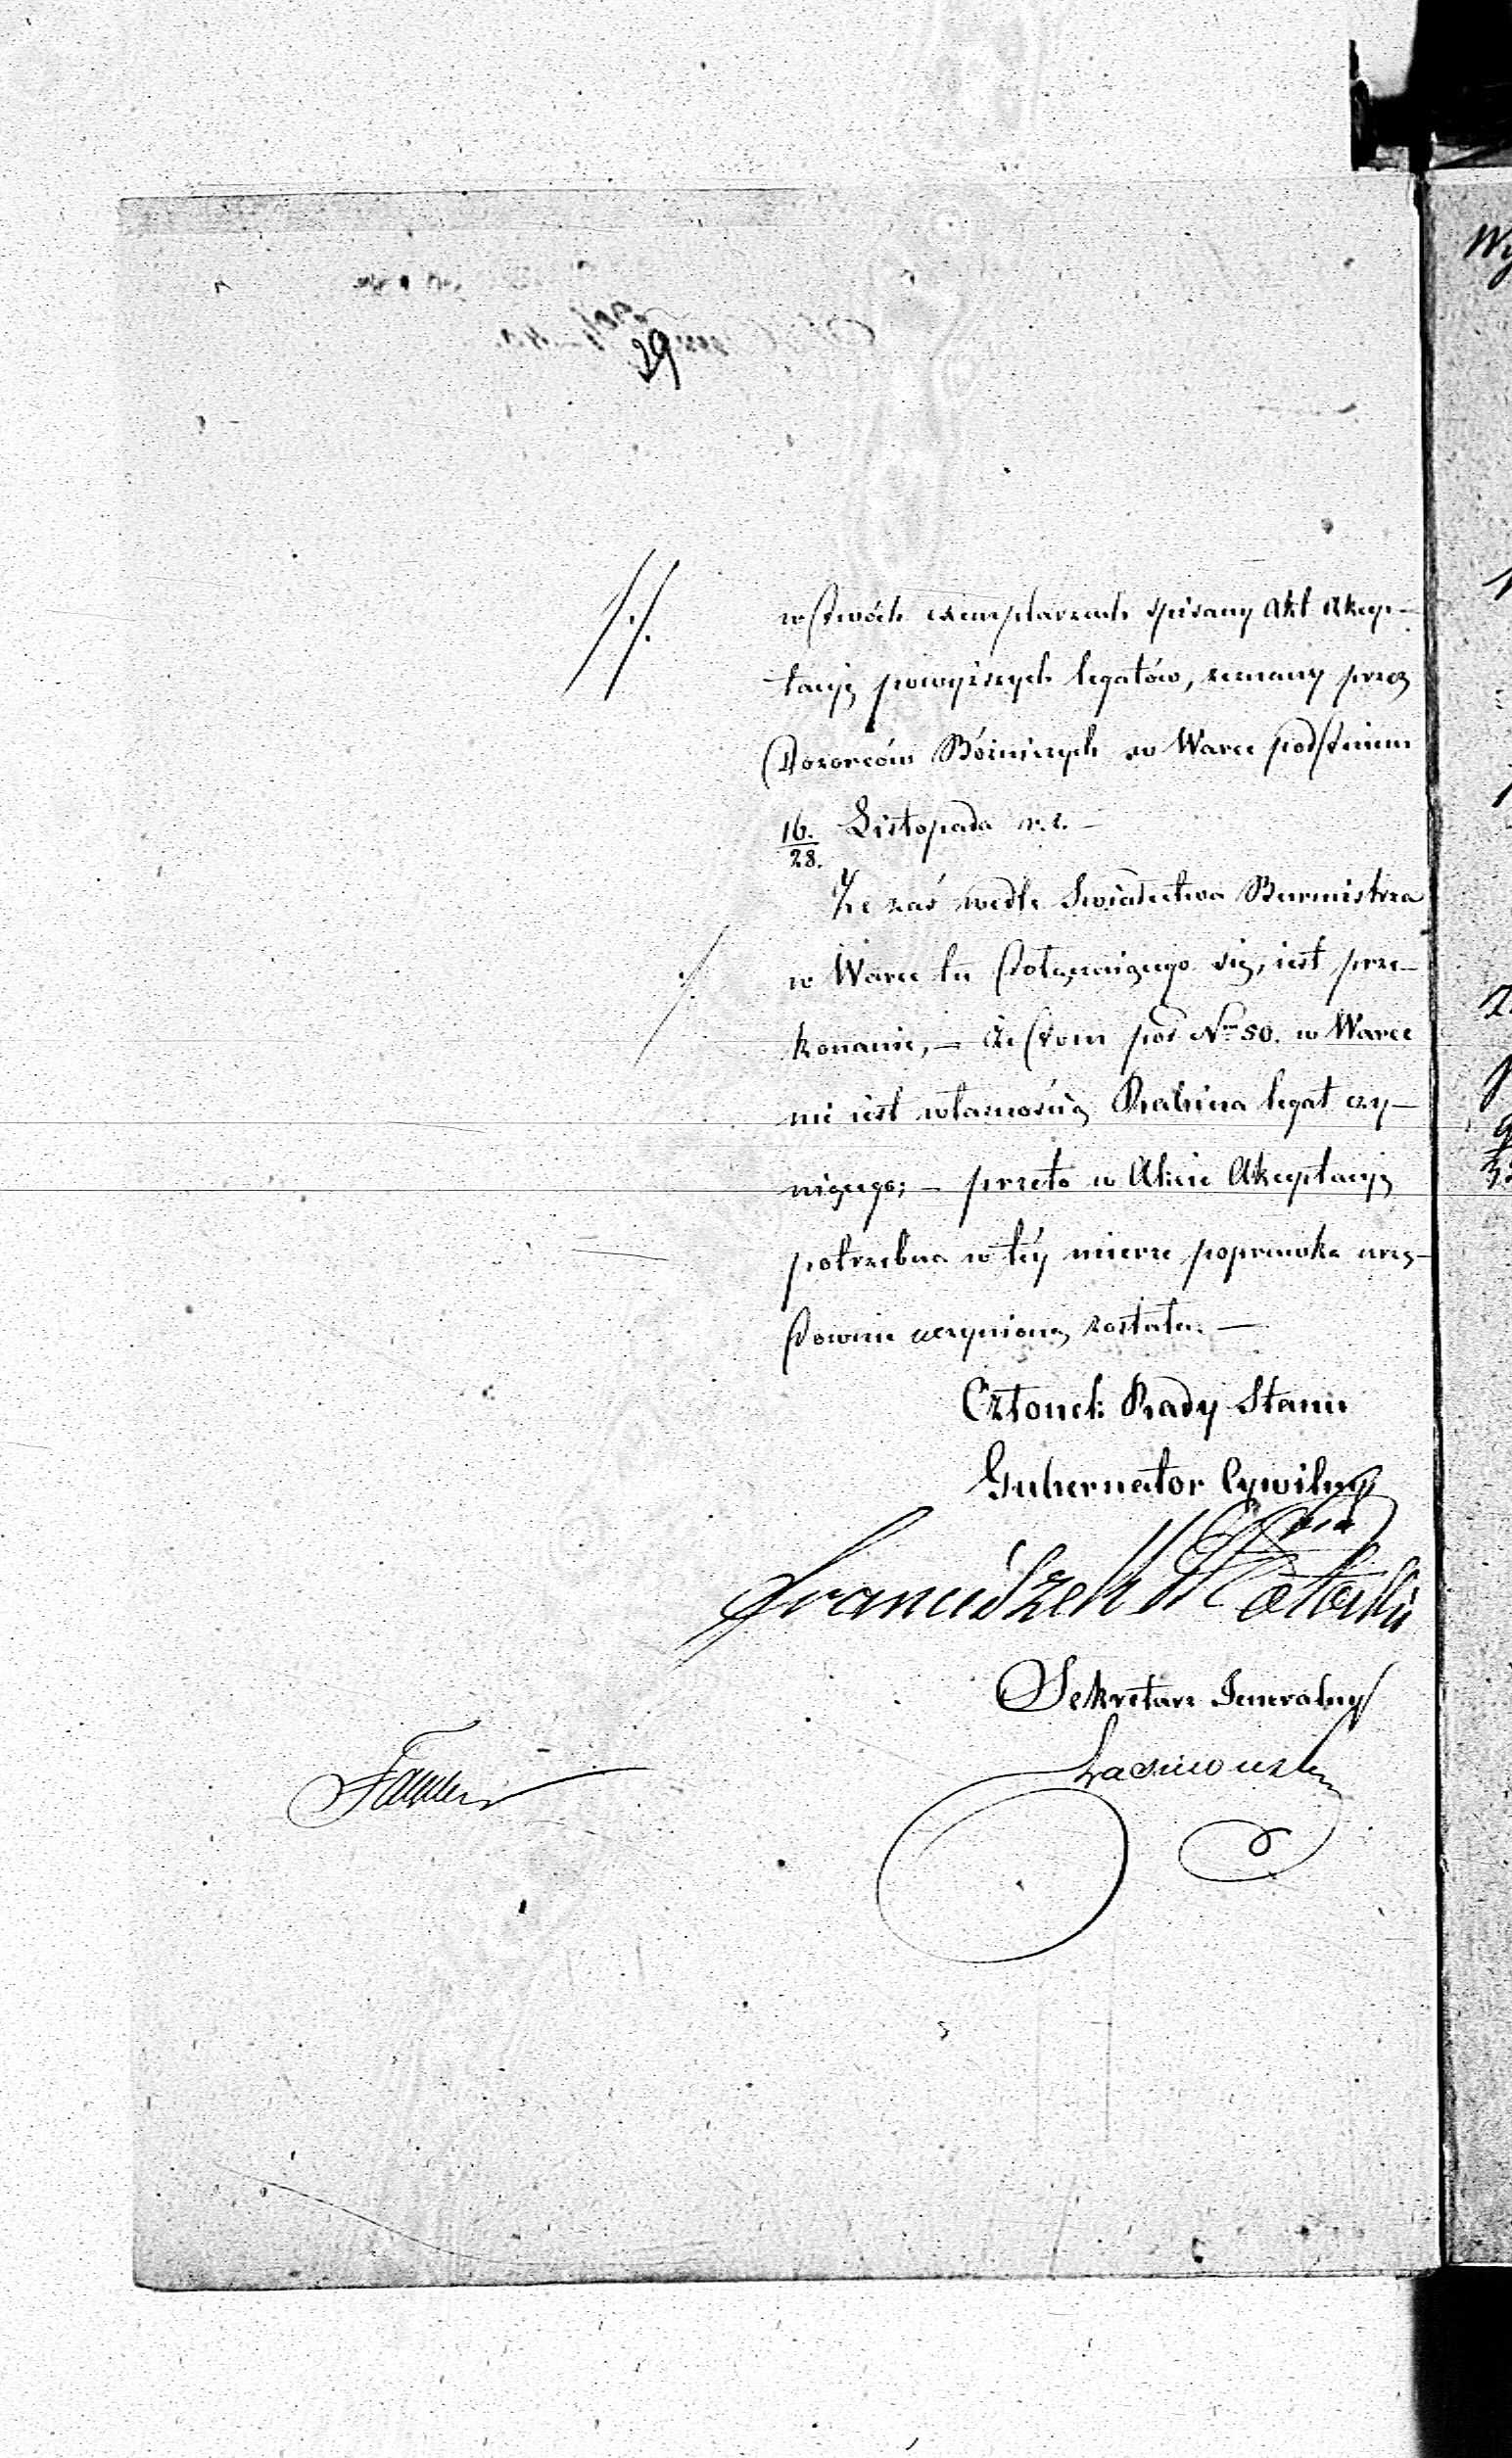 29
w dwóch exemplarzach spisany Akt Akcep-
tacyi powyższych legatów, zeznany przez
Dozorców Bóżniczych w Warce pod dniem
16./28. Listopada r. z. —
Że zaś wedle Swiadectwa Burmistrza
w Warce tu dołączaiącego się, iest prze-
konanie, — że dom pod Nrm 50. w Warce
nie iest własnością Rabina legat czy-
niącego; — przeto w Akcie Akceptacyi
potrzebna w téy mierze poprawka urzę-
downie uczynioną została. —
Członek Rady Stanu
Gubernator Cywilny
Franciszek
Sekretarz Jeneralny